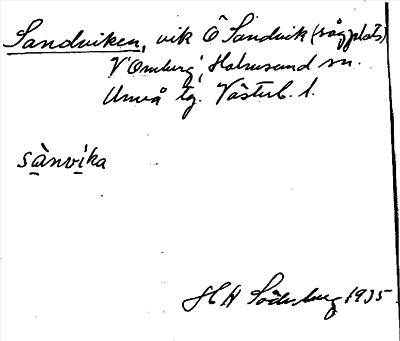 Sandviken, vik Ö Sandvik (sågplats)
V Omberg, Holmsund sn.
Umeå tg. Västerb. l.
sànvíka
H A Söderberg 1935